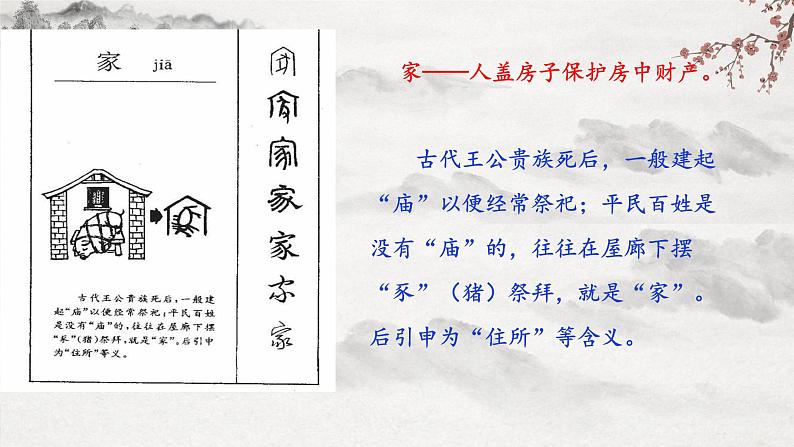 家 jiā
家
家
家
家
家
家
家
古代王公贵族死后，一般建
起“庙”以便经常祭祀；平民百姓
是没有“庙”的，往往在屋廊下摆
“豕”(猪)祭拜，就是“家”。后引申
为“住所”等义。
家——人盖房子保护房中财产。
古代王公贵族死后，一般建起
“庙”以便经常祭祀；平民百姓是
没有“庙”的，往往在屋廊下摆
“豕”（猪）祭拜，就是“家”。
后引申为“住所”等含义。